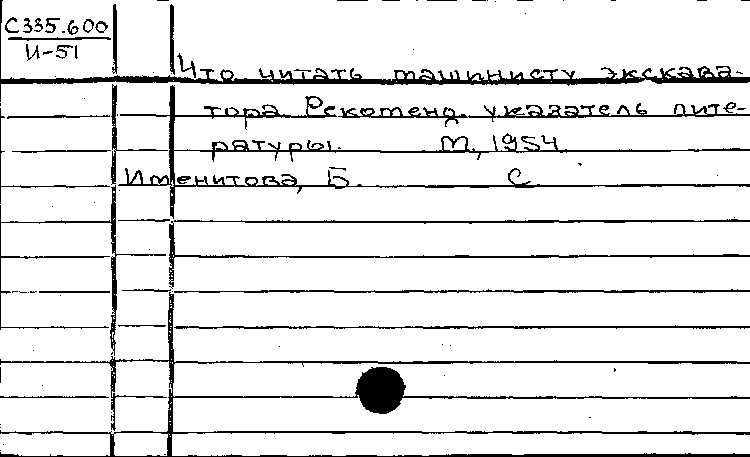 С335.600
И-51
Что читать машинисту экскава-
тора. Рекоменд. указатель лите-
ратуры. М., 1954.
Именитова, Б. С